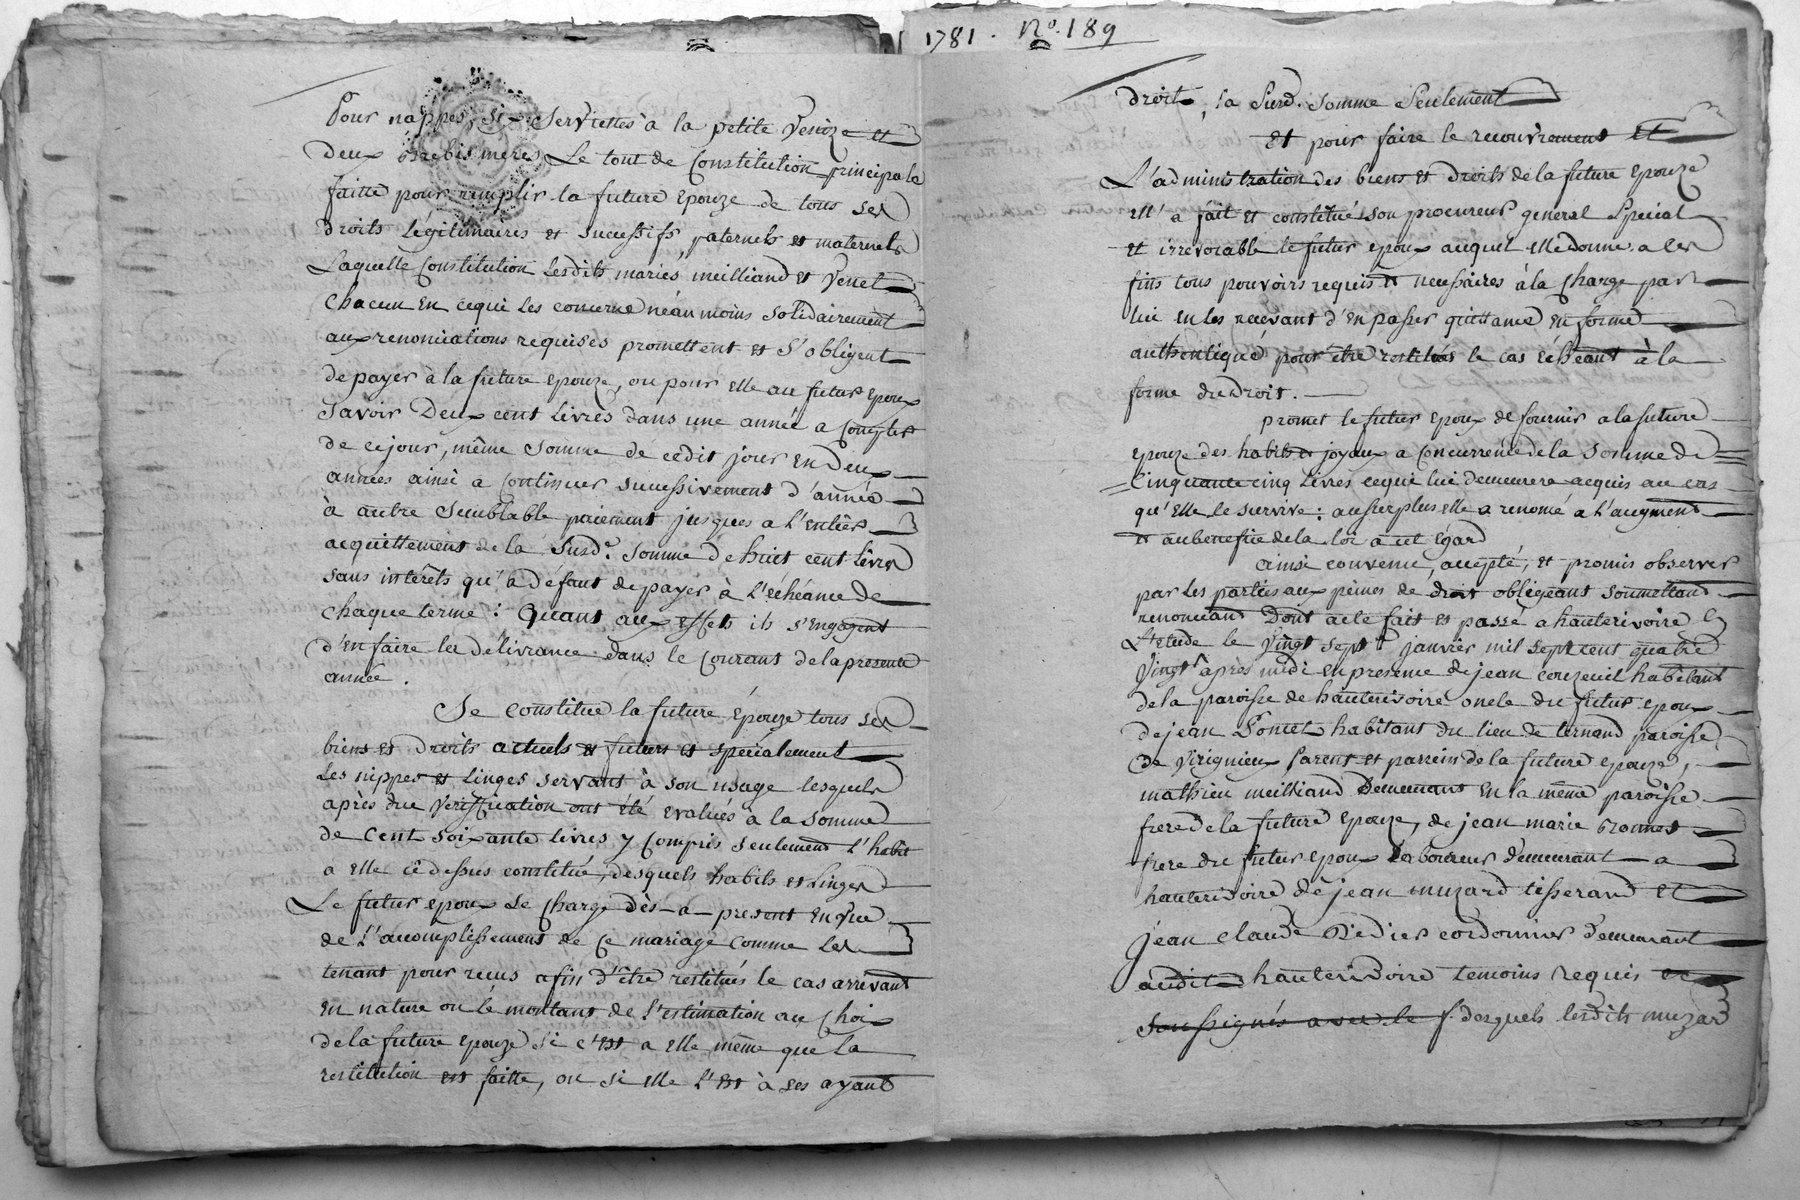 Pour nappes, six serviettes à la petite Venize et
deux brebis meres Le tout de Constitution principale
faitte pour remplir la future epouze de tous ses
droits légitimaires et successifs, paternels et maternels
Laquelle Constitution lesdits mariés meilliand et Venet
chacun en cequi les concerne néanmoins solidairement
aux renonciations requises promettent et s'obligent
de payer à la future epouze, ou pour elle au futur epoux
savoir Deux cent Livres dans une année a Compter
de ce jour, même somme de cedit jour en Deux
années ainsi a Continuer sucessivement d'année
à autre semblable paiement jusques a l'entier
acquittement de la susd.e somme de huit cent Livres
sans intérêts qu'a défaut de payer à l'échéance de
chaque terme : Quant aux effets ils s'engagent
d'en faire la délivrance dans le Courant de la presente
année.
Se constitue la future Epouze tous ses
biens et droits actuels et futurs et specialement
Les nippes et linges servant à son usage lesquels
après due verification ont été evalués à la somme
de Cent soixante livres y Compris seulement l'habit
a elle cidessus constitué, desquels habits et linges
Le futur epoux se charge dès-a-present en vue
de l'acomplissement de Ce mariage comme les
tenant pour recus afin d'être restitués le cas arrivant
en nature ou le montant de l'estimation au Choix
de la future epouze si c'est a elle même que la
restitution est faitte, ou si elle l'est à ses ayant
1781. No. 189
droit, la susd. somme seulement
Et pour faire le recouvrement et
L'administration des biens et droits de la future epouze
ell' a fait et constitué son procureur general special
et irrevocable le futur epoux auquel elle donne a ces
fins tous pouvoirs requis et necessaires à la charge par
lui en les recevant d'en passer quittance en forme
authentique pour être restitués le cas échéant à la
forme du droit.
promet le futur epoux de fournir a la future
epouze des habits et joyaux a Concurrence de la somme de
Cinquante cinq livres cequi lui demeurera acquis au cas
qu'elle le survive : au surplus elle a renoncé à l'augment
et au benefice de la loi a cet égard
ainsi convenu, accepté, et promis observer
par les parties aux peines de droit obligeant soumettant
renonciant Dont acte fait et passé a hauterivoire
L'etude le vingt sept janvier mil sept cent quatre
vingt après midi en presence de jean couzeuil habitant
de la paroisse de hauterivoire oncle du futur epoux
de jean Poncet habitant du lieu de ternand paroisse
de Virignieux, parent et parrein de la future epouze,
mathieu meilliand Demeurant en la même paroisse
frere de la future epouze, de jean marie
frere du futur epoux laboureur demeurant a
hauterivoire de jean muzard tisserand et
jean claude Didier cordonnier demeurant
audit hauterivoire temoins requis et
soussignés avec le f. desquels lesdits muzard